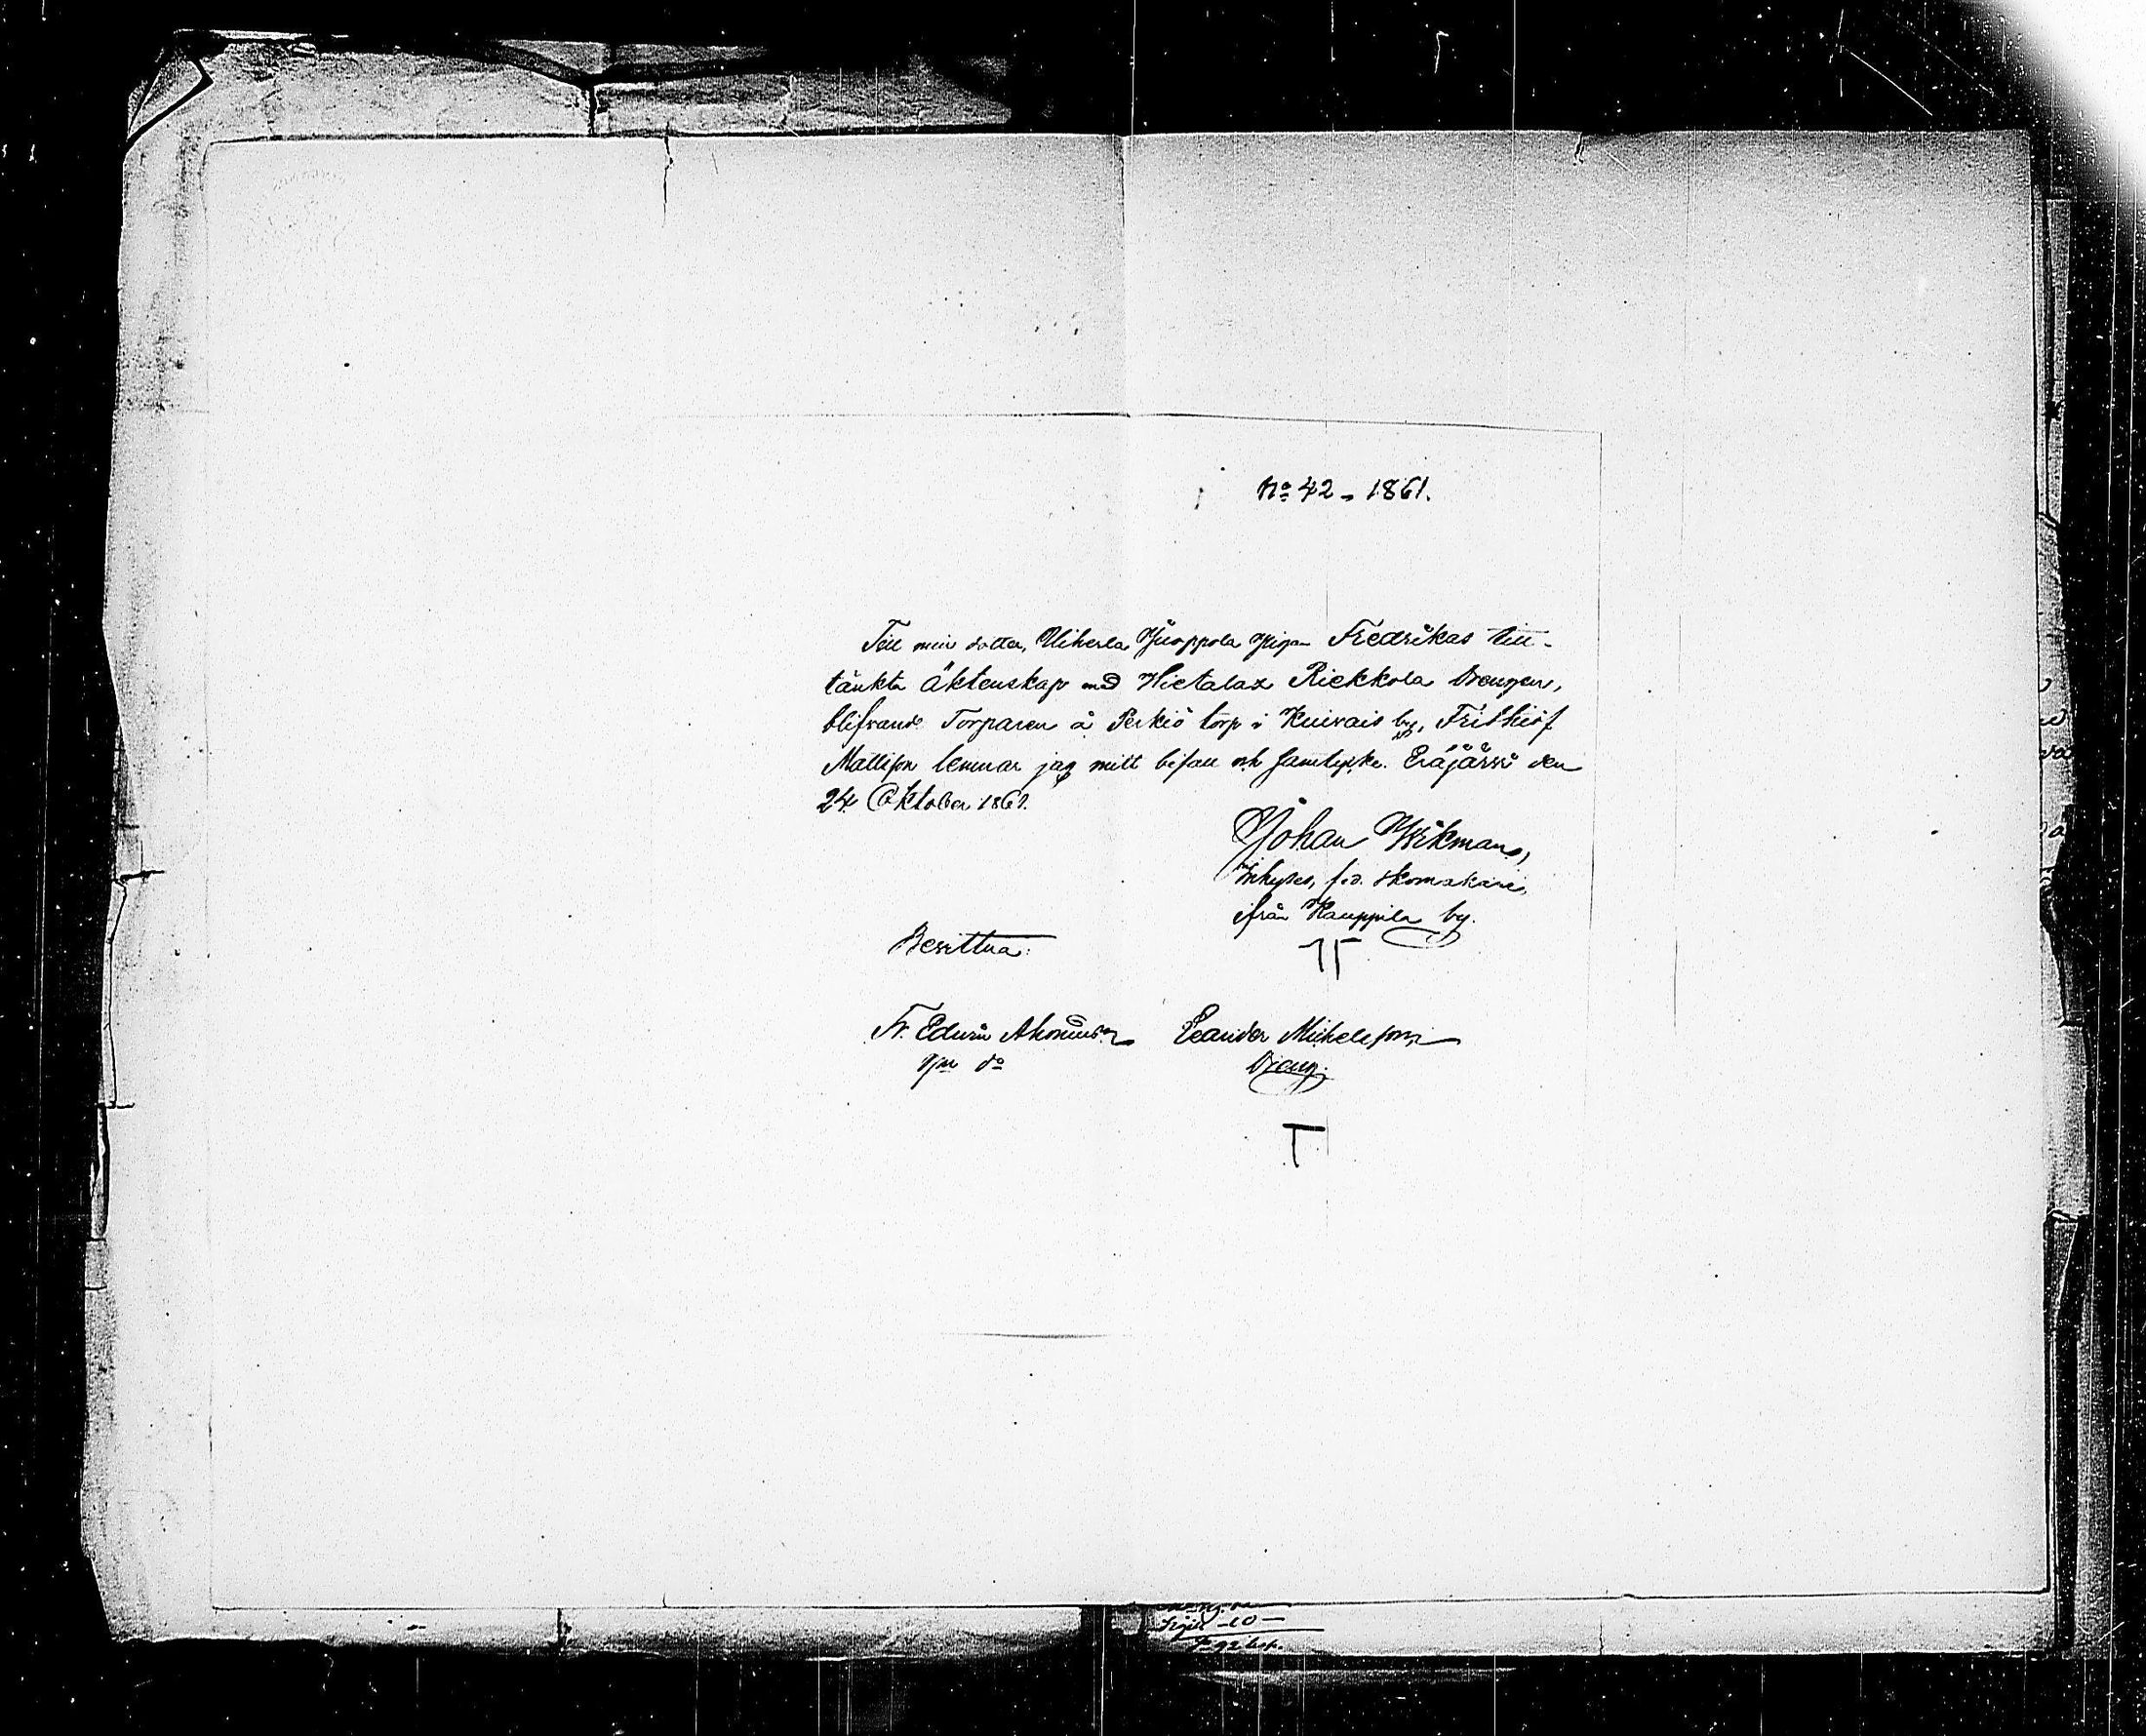 No 42 – 1861.
Till min dotter, Uiherla Juoppola Pigan Fredrikas till-
tänkta äktenskap med Hietalax Riekkola Drengen,
blifvande Torparen å Perkiö torp i Kuivais by, Frithiof
Mattsson lemnar jag mitt bifall och samtycke. Eräjärvi den
24 Oktober 1861.
Johan Wikman,
Inhyses, f.d. skomakare,
ifrån Kauppila by.
Bevittna:
Fr. Edvin Leander Michelsson,
Dreng.